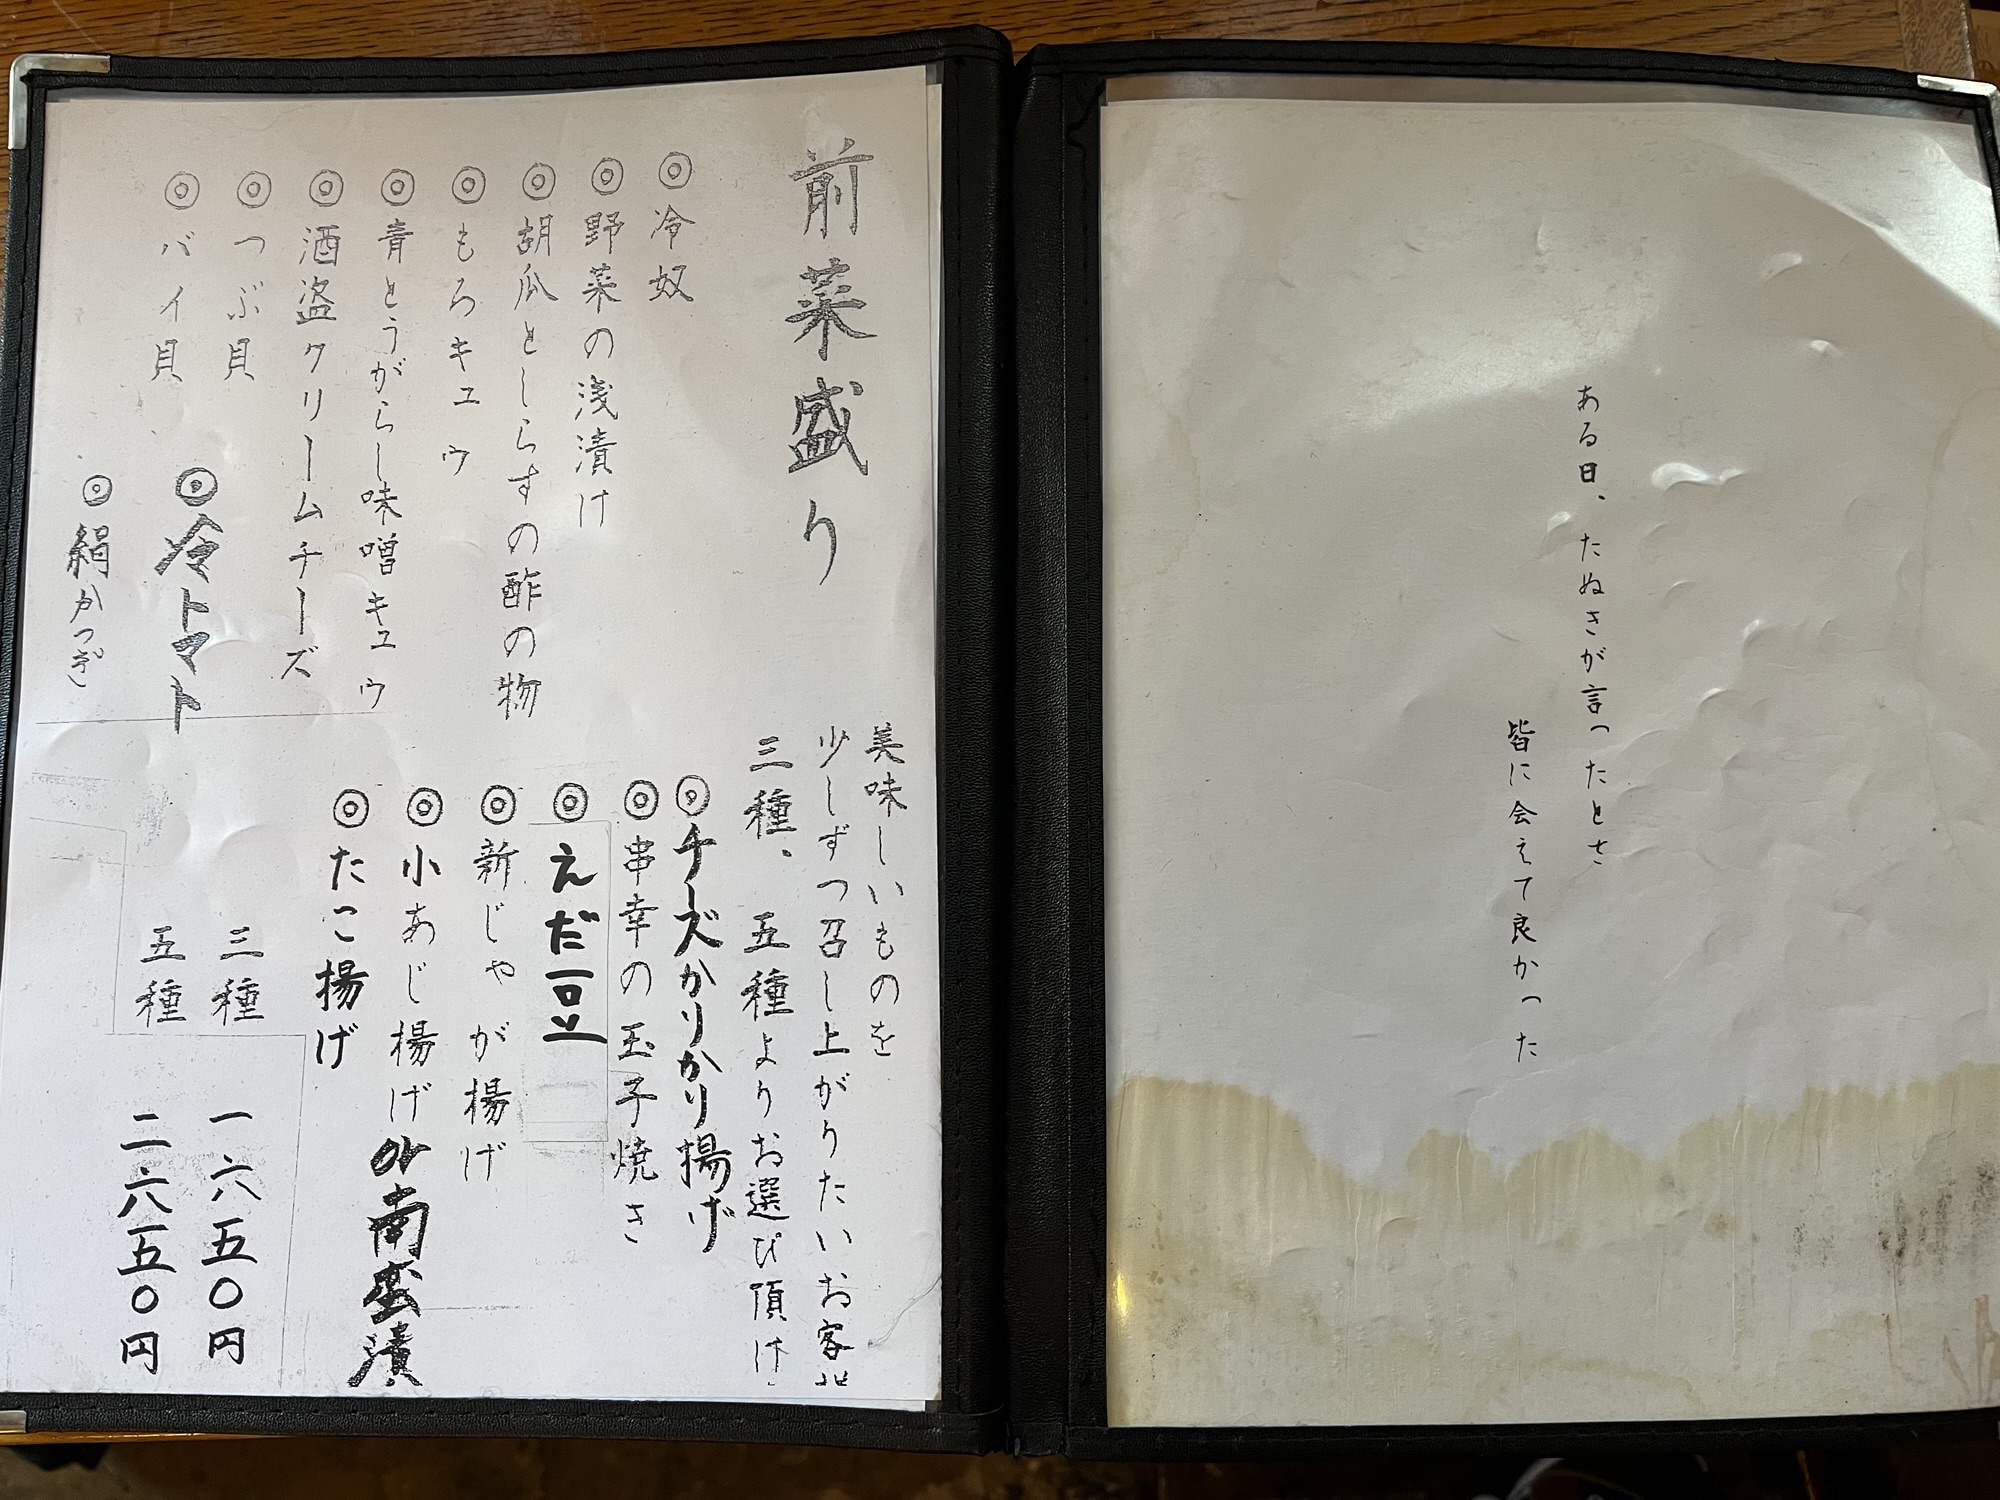 ある日、たぬきが言ったとさ
皆に会えて良かった
前菜盛り
美味しいものを
少しずつ召し上がりたいお客
三種、五種よりお選び頂け
◎冷奴
◎野菜の浅漬け
◎胡瓜としらすの酢の物
◎もろキュウ
◎青とうがらし味噌キュウ
◎酒盗クリームチーズ
◎つぶ貝
◎バイ貝
◎冷トマト
◎絹かつぎ
◎チーズかりかり揚げ
◎串幸の玉子焼き
◎えだ豆
◎新じゃが揚げ
◎小あじ揚げor南蛮漬
◎たこ揚げ
三種 一六五〇円
五種 二六五〇円